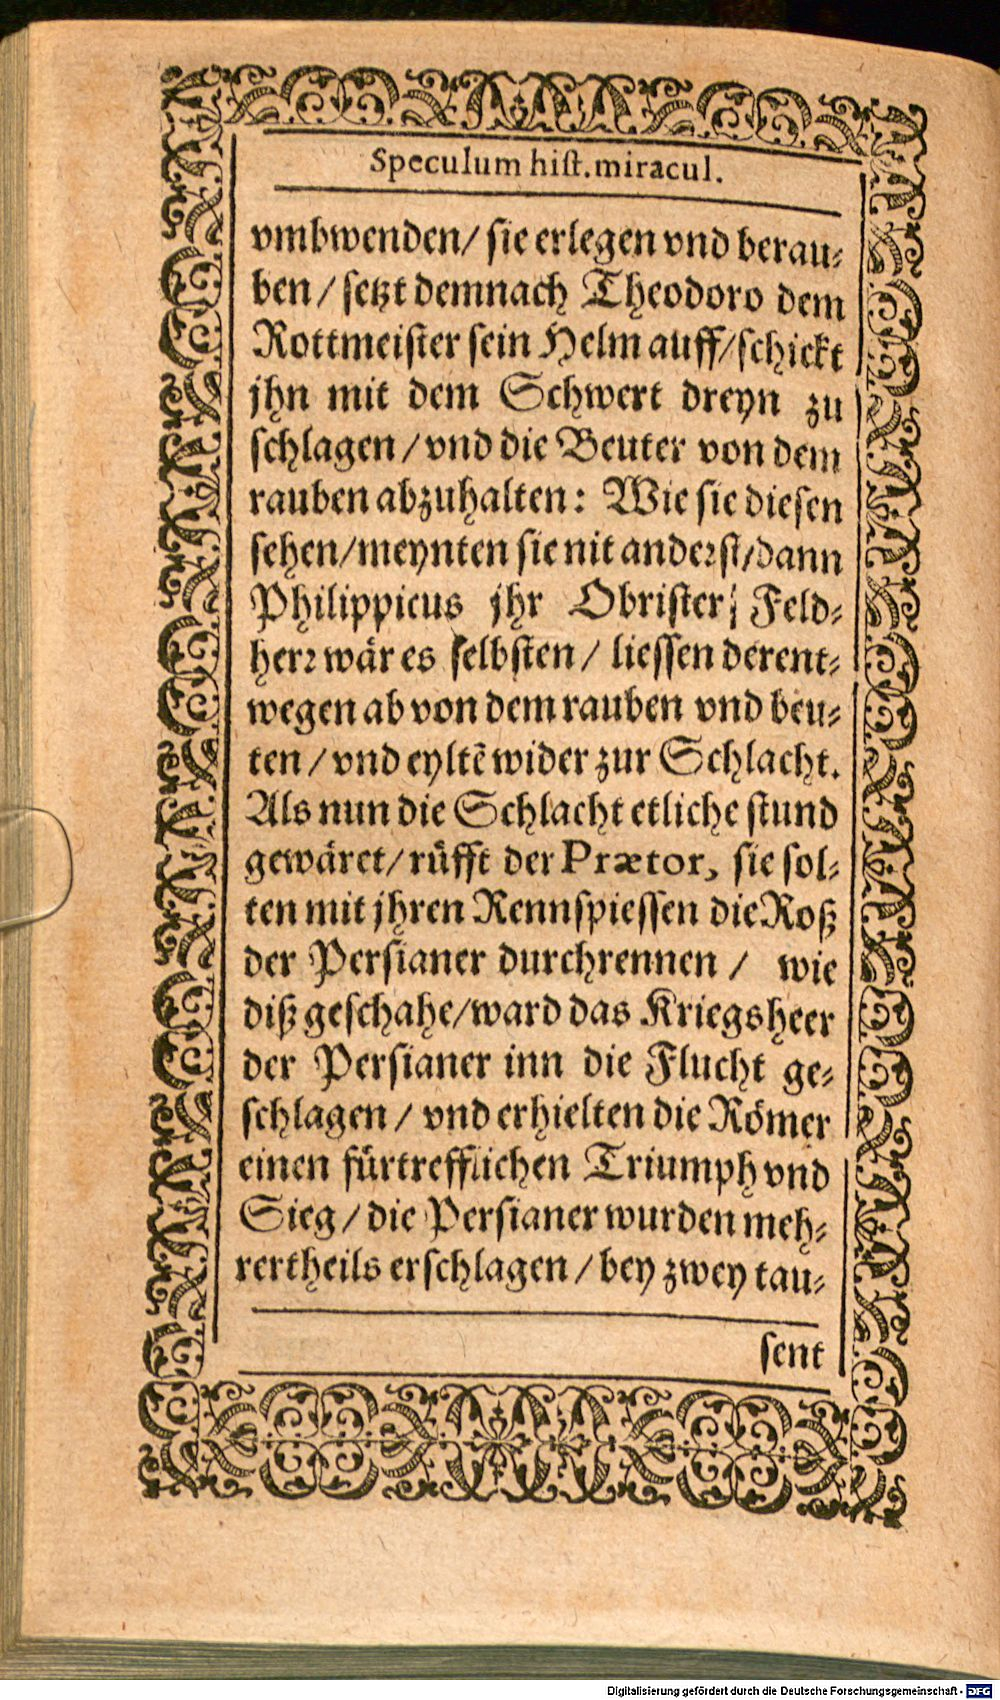 Speculum hist. miracul.
vmbwenden/ sie erlegen vnd berau-
ben/ setzt demnach Theodoro dem
Rottmeister sein Helm auff/ schickt
jhn mit dem Schwert dreyn zu
schlagen/ vnd die Beuter von dem
rauben abzuhalten: Wie sie diesen
sehen/ meynten sie nit anderst/ dann
Philippicus jhr Obrister/ Feld-
herr wär es selbsten/ liessen derent-
wegen ab von dem rauben vnd beu-
ten/ vnd eyltẽ wider zur Schlacht.
Als nun die Schlacht etliche stund
gewäret/ rüfft der Prætor, sie sol-
ten mit jhren Rennspiessen die Roß
der Persianer durchrennen/ wie
diß geschahe/ ward das Kriegsheer
der Persianer inn die Flucht ge-
schlagen/ vnd erhielten die Römer
einen fürtrefflichen Triumph vnd
Sieg/ die Persianer wurden meh-
rertheils erschlagen/ bey zwey tau-
sent
Digitalisierung gefördert durch die Deutsche Forschungsgemeinschaft - DFG